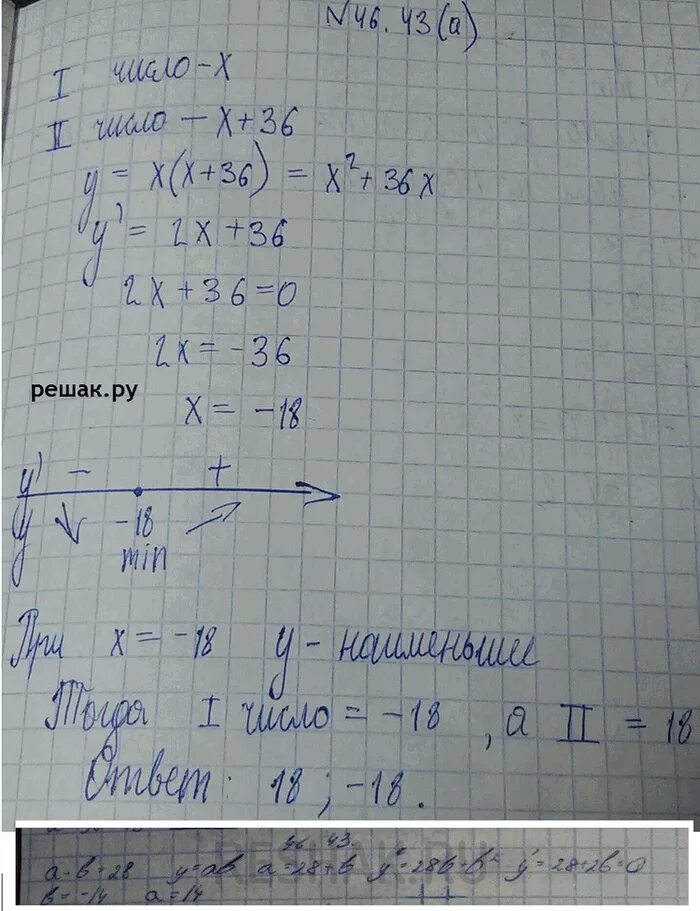 №46.43(а)
I число - x
II число - x+36
y = x(x+36) = x²+36x
y' = 2x+36
2x+36=0
2x = -36
решак.ру
x = -18
y' - +
y -18
min
При x = -18 y - наименьшее
Тогда I число = -18, а II = 18
Ответ: 18; -18.
RESHAK.RU
46 43.
a-b=28 y=ab a=28+b y=28b+b² y'=28+2b=0
b=-14 a=14